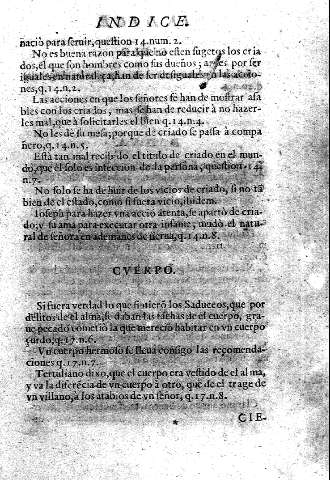 INDICE.
naciò para seruir, question 14. num. 2.
No es buena razon para que no esten sugetos los cria
dos, el que son hombres como sus dueños; antes por ser
iguales en naturaleza, han de ser desiguales en las accio-
nes, q. 14. n. 2.
Las acciones en que los señores se han de mostrar afa
bles con los criados, mas se han de reducir à no hazer-
les mal, que à solicitarles el bien q. 14. n. 4.
No les dè su mesa; porque de criado se passa à compa
ñero, q. 14. n. 5.
Està tan mal recibido el titulo de criado en el mun-
do, que el solo es infeccion de la persona, question 14.
n. 7.
No solo se ha de huir de los vicios de criado, si no tā
bien de el estado, como si fuera vicio, ibidem.
Ioseph para hazer vna accio atenta, se apartò de cria-
do; y su ama para executar otra infame, de el natu-
ral de señora en ademanes de sierua, q. 14. n. 8.
CVERPO.
Si fuera verdad lo que fintieró los Saduceos, que por
delitos de el alma, se daban las tachas de el cuerpo, gra-
ue pecado cometiò la que mereciò habitar en vn cuerpo
çurdo, q. 17. n. 6.
Vn cuerpo hermoso se lleua consigo las recomenda-
ciones q. 17. n. 7.
Tertuliano dixo, que el cuerpo era vestido de el alma,
y va la diferécia de vn cuerpo à otro, que de el trage de
vn villano, à los atabios de vn señor, q. 17. n. 8.
CIE-